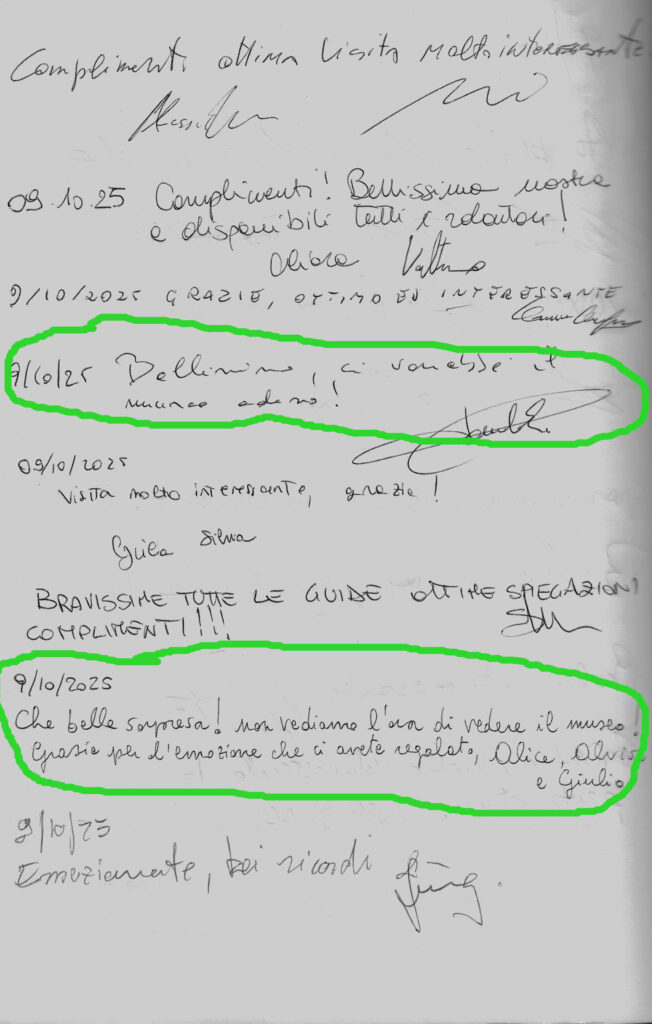 Complimenti ottima visita molto interessante
09.10.25 Complimenti! Bellissima mostra
e disponibili tutti i volontari!
Chiara
9/10/2025 GRAZIE, OTTIMO ED INTERESSANTE
9/10/25 Bellissimo, ci vorrebbe il
museo adesso!
09/10/2025
Visita molto interessante, grazie!
Silva
BRAVISSIME TUTTE LE GUIDE OTTIME SPIEGAZIONI
COMPLIMENTI!!!
9/10/2025
Che bella sorpresa! non vediamo l'ora di vedere il museo!
Grazie per l'emozione che ci avete regalato, Alice, Alvise
e Giulio
9/10/25
Emozionante, bei ricordi